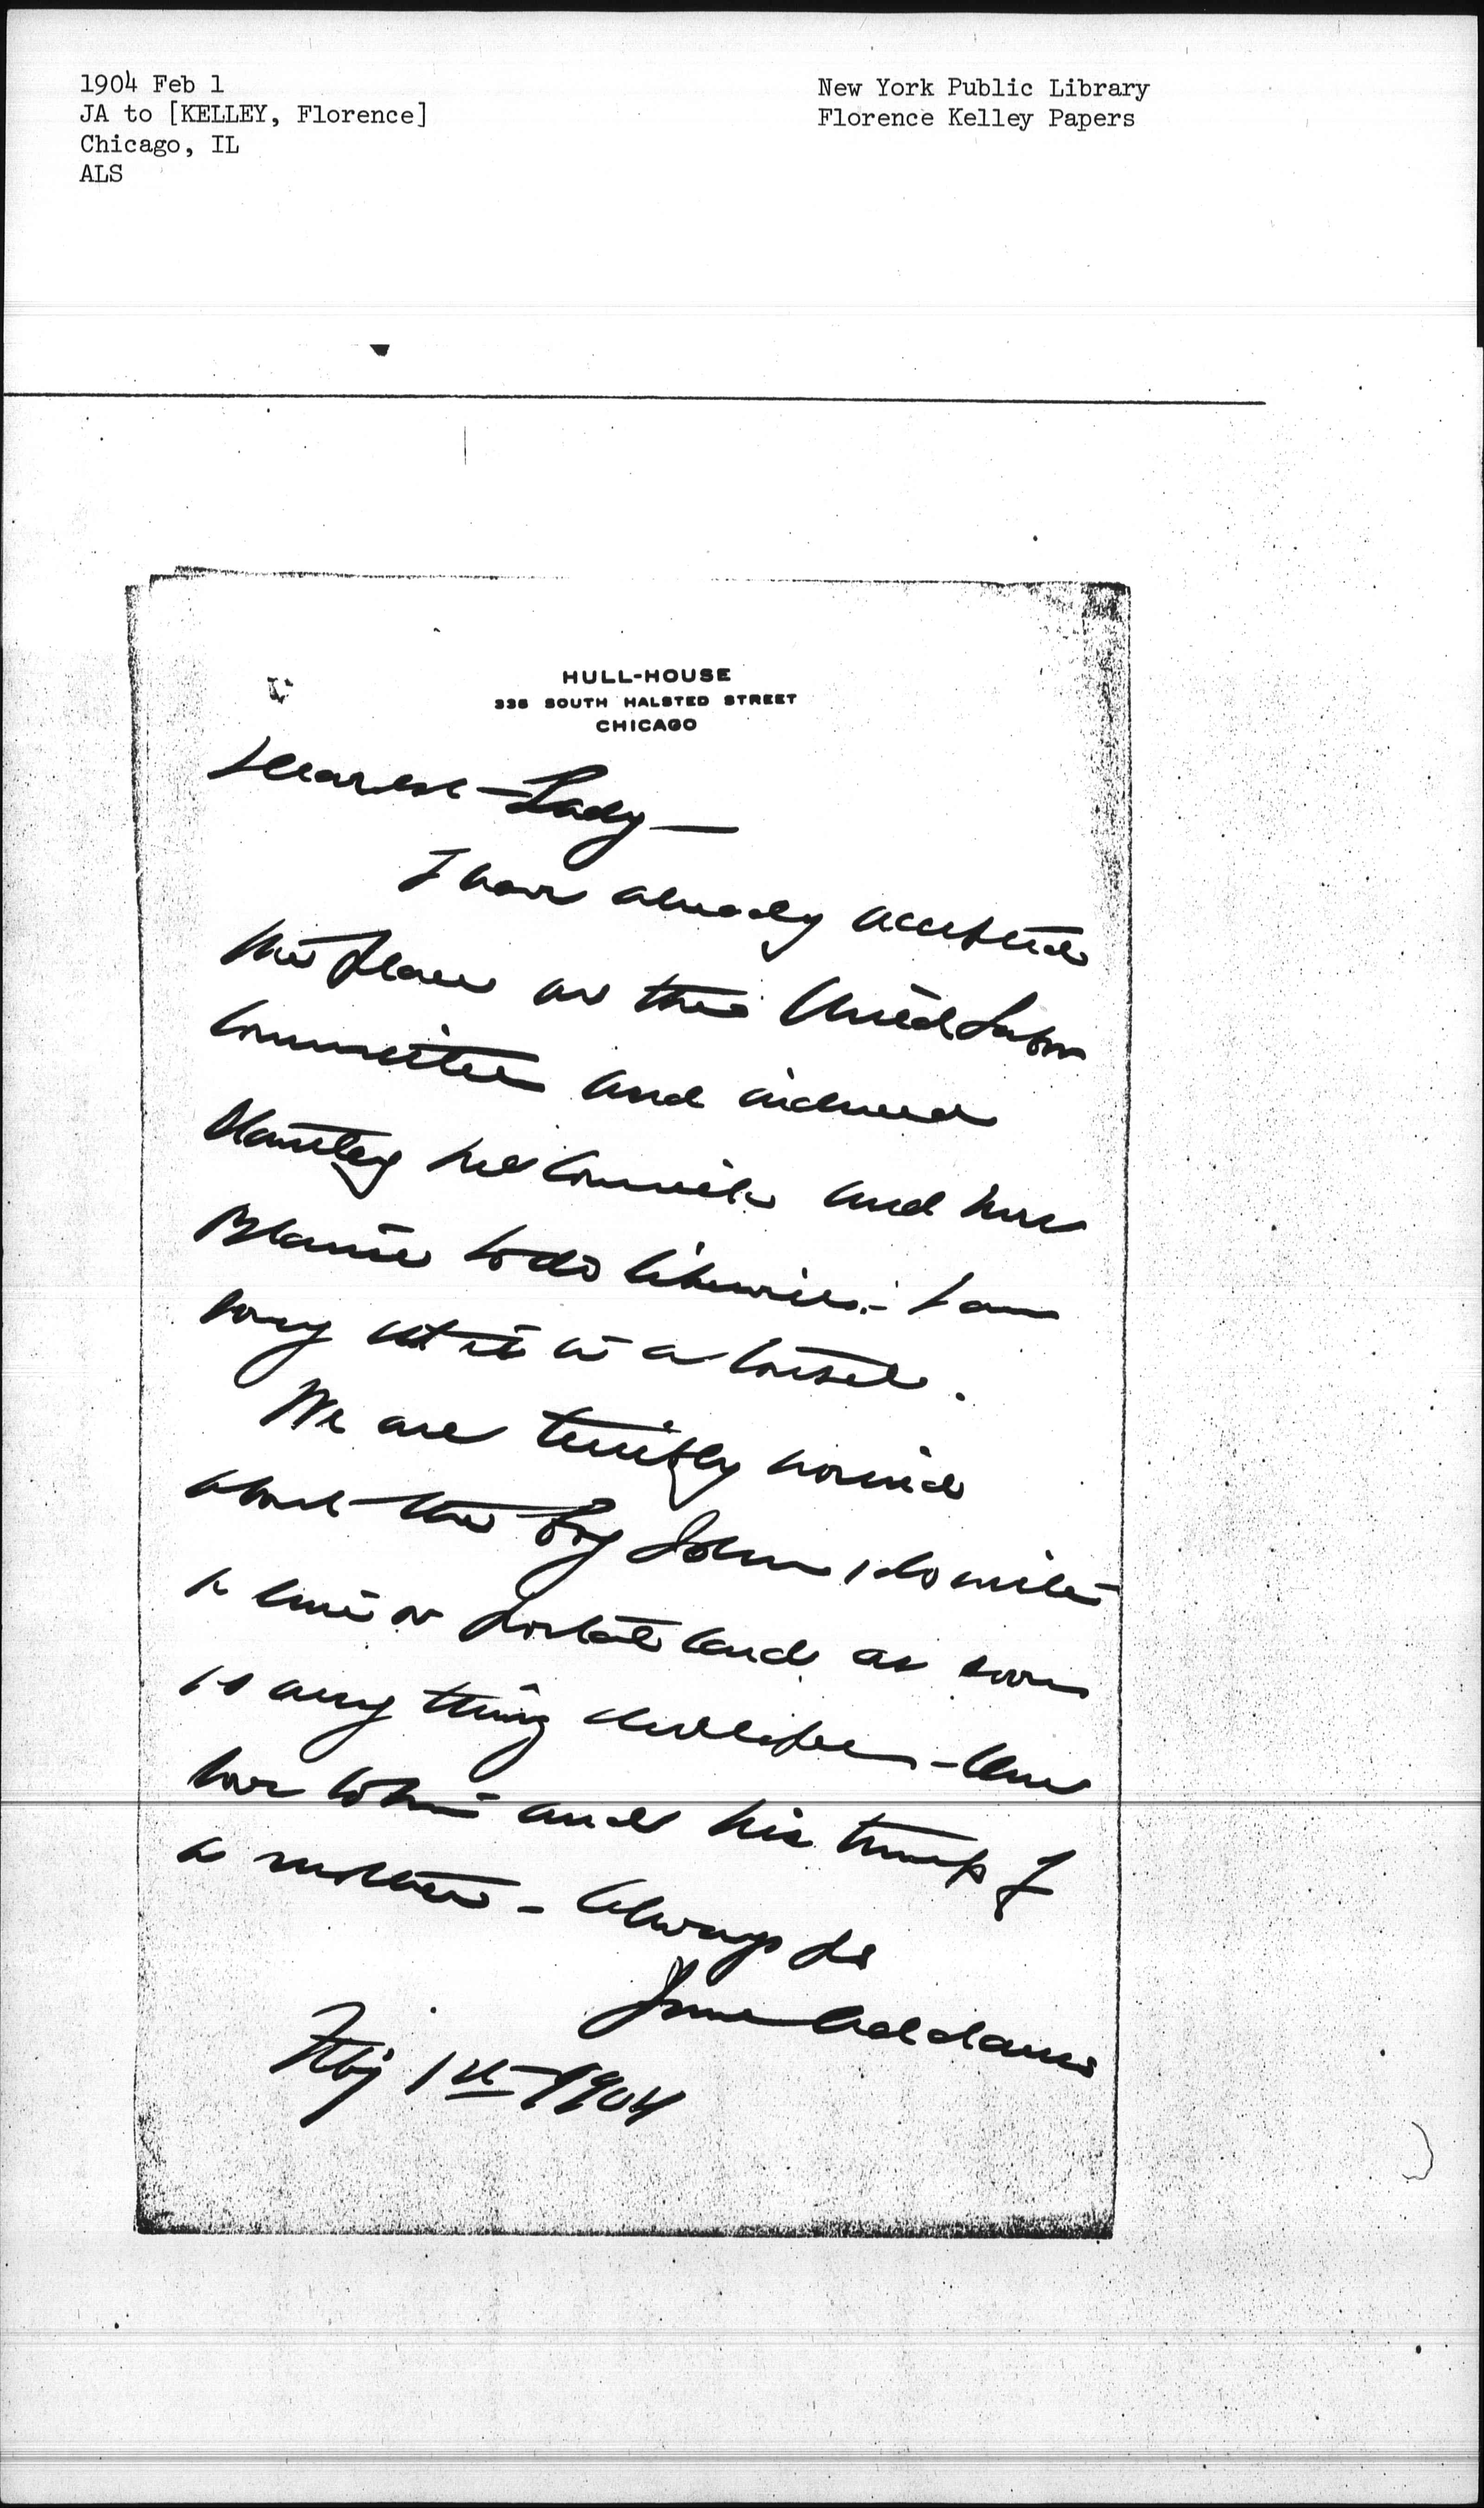 1904 Feb 1
JA to [KELLEY, Florence]
Chicago, IL
ALS
New York Public Library
Florence Kelley Papers
HULL-HOUSE
335 SOUTH HALSTED STREET
CHICAGO
Dearest Lady —
I have already accepted
the place on the Child Labor
Committee and induced
Stanley McCormick and Mrs
Blaine to do likewise. I am
sorry
We are terribly worried
about the boy John, do write
a line or postal card as soon
as any thing develops - Our
love to him and his trump of
a mother - Always yrs
Jane Addams
Feby 1st 1904